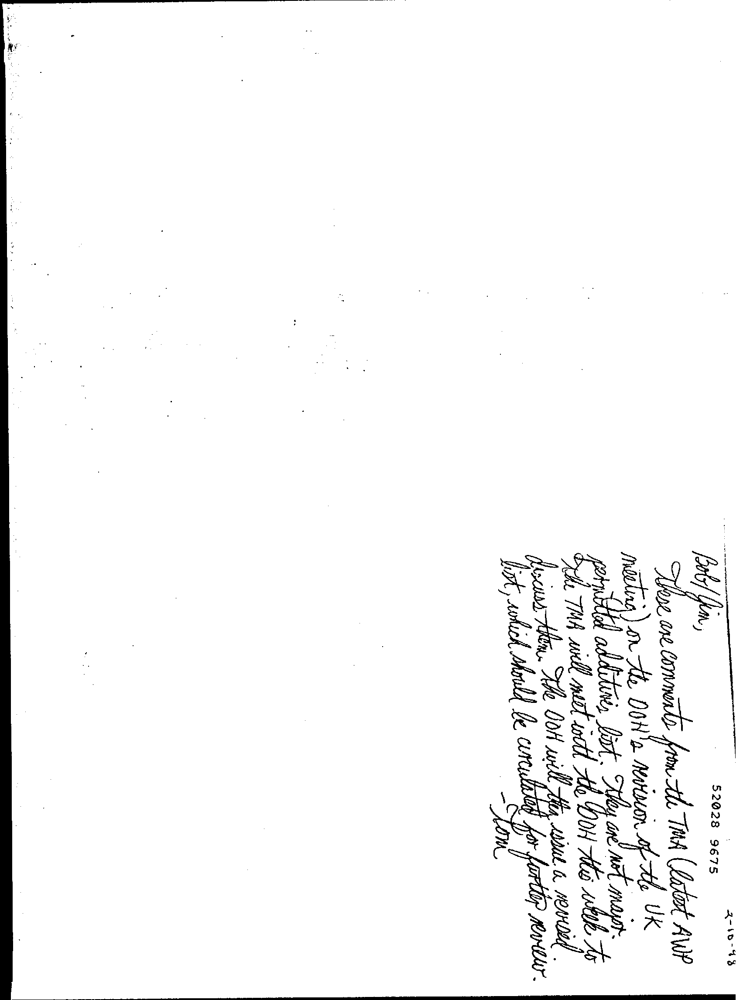 2-10-98
52028 9675
Bob/Jim,
These are comments from the TMA (latest AWP
meeting) on the DOH's revision of the UK
permitted additives list. They are not major.
The TMA will meet with the DOH this week to
discuss them. The DOH will then issue a revised
list, which should be circulated for further review.
-Tom